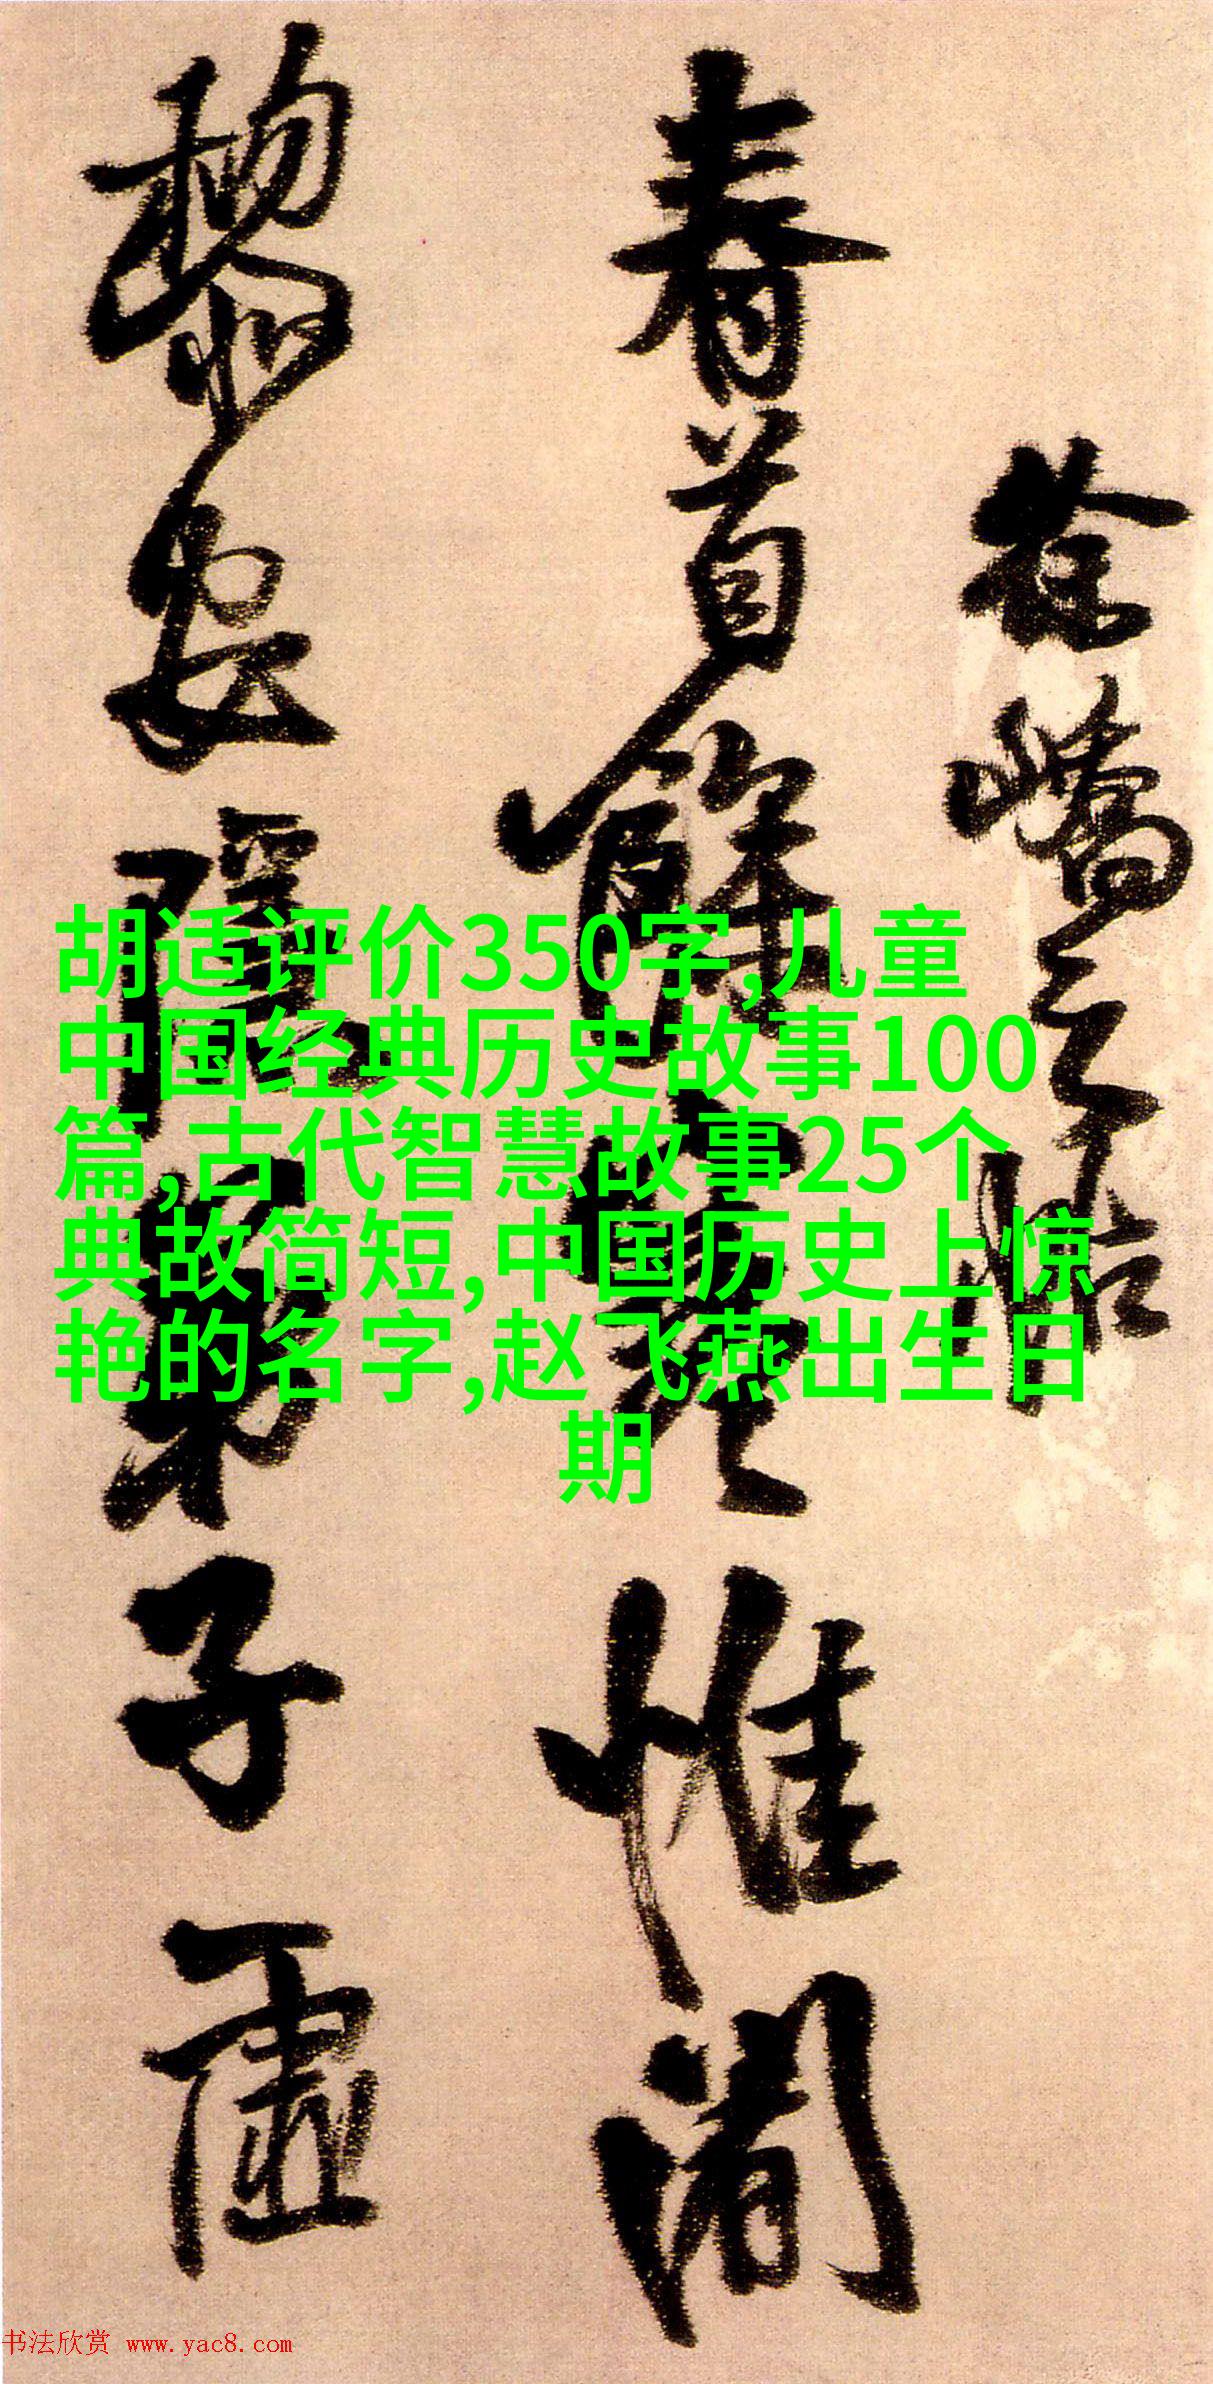 徐峤之帖
春首餘寒惟闍
黎安隱弟子虚
胡适评价350字,儿童
中国经典历史故事100
篇,古代智慧故事25个
典故简短,中国历史上惊
艳的名字,赵飞燕出生日
期
书法欣赏 www.yac8.com